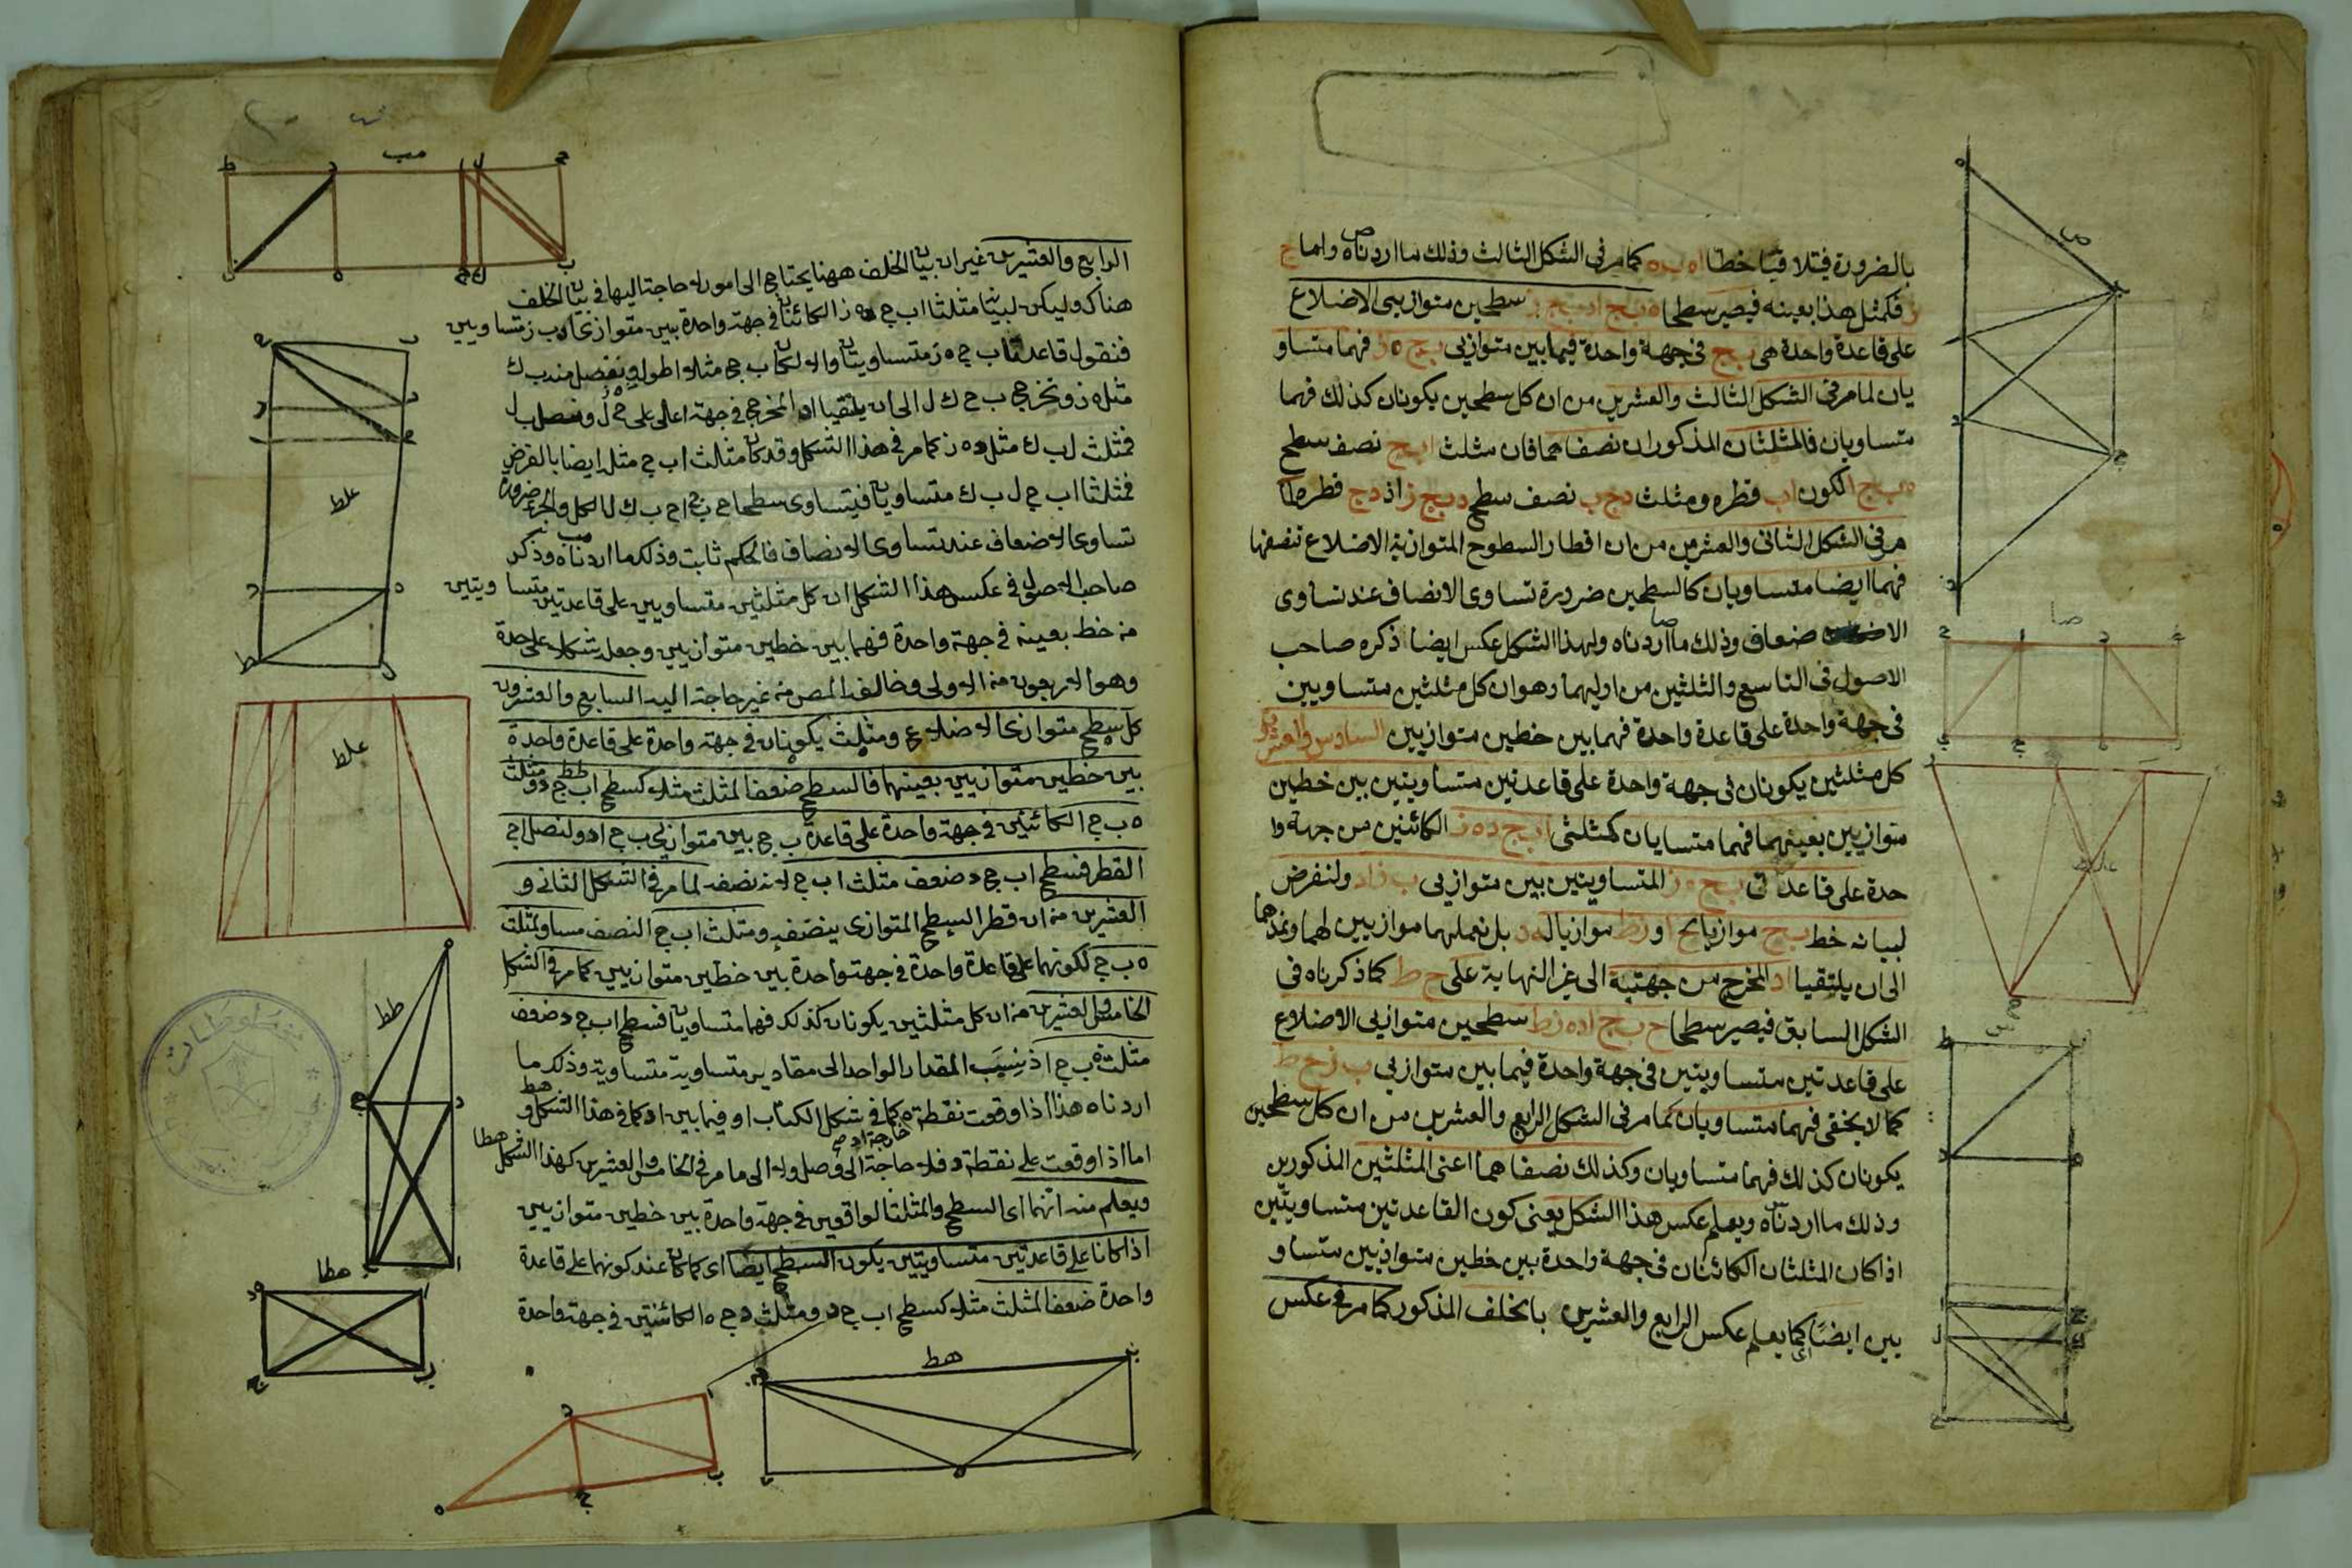 بالضرورة فيتلاقيا خطا اه ده كما مر فى الشكل الثالث وذلك ما اردناه واما ج
فكمثل هذا بعينه فيصير سطحا ه ب ج ا د ب ج ز سطحين متوازيى الاضلاع
على قاعدة واحدة هى ب ج فى جهة واحدة فيما بين متوازيى ب ج ه ز فهما متساو
يان لما مر فى الشكل الثالث والعشرين من ان كل سطحين يكونان كذلك فهما
متساويان فالمثلثان المذكوران نصفاهما فان مثلث ا ب ج نصف سطح
ه ب ج ا لكون ا ب قطره ومثلث د ج ب نصف سطح د ب ج ز اذ د ج قطره لما
مر فى الشكل الثانى والعشرين من ان اقطار السطوح المتوازية الاضلاع تنصفها
فهما ايضا متساويان كالسطحين ضرورة تساوى الانصاف عند تساوى
الاضعاف وذلك ما اردناه ولهذا الشكل عكس ايضا ذكره صاحب
الاصول فى التاسع والثلثين من اوليهما وهو ان كل مثلثين متساويين
فى جهة واحدة على قاعدة واحدة فهما بين خطين متوازيين السادس والعشرون
كل مثلثين يكونان فى جهة واحدة على قاعدتين متساويتين بين خطين
متوازيين بعينهما فهما متسايان كمثلثى ا ب ج د ه ز الكائنين من جهة وا
حدة على قاعدتى ب ج ه ز المتساويتين بين متوازيى ب ز ا د ولنفرض
لبيانه خط ب ح موازيا لج ا و ز ط موازيا له د بل نعملهما موازيين لهما ونمدهما
الى ان يلتقيا ا د المخرج من جهتيه الى غير النهاية على ح ط كما ذكرناه فى
الشكل السابق فيصير سطحا ح ب ج ا د ه ز ط سطحين متوازيى الاضلاع
على قاعدتين متساويتين فى جهة واحدة فيما بين متوازيى ب ز ح ط
كما لا يخفى فهما متساويان لما مر فى الشكل الرابع والعشرين من ان كل سطحين
يكونان كذلك فهما متساويان وكذلك نصفاهما اعنى المثلثين المذكورين
وذلك ما اردناه ويعلم عكس هذا الشكل يعنى كون القاعدتين متساويتين
اذا كان المثلثان الكائنان فى جهة واحدة بين خطين متوازيين متساو
يين ايضا كما يعلم عكس الرابع والعشرين بالخلف المذكور كما مر فى عكس
الرابع والعشرين غير ان بيان الخلف ههنا يحتاج الى امور لا حاجة اليها فى بيان الخلف
هناك وليكن لبيانه مثلثا ا ب ج د ه ز الكائنان فى جهة واحدة بين متوازيى ا د ب ز متساويين
فنقول قاعدتا ب ج ه ز متساويتان والا لكان ب ج مثلا اطول ونفصل منه ب ك
مثل ه ز ونخرج ب ح ك ل الى ان يلتقيا ا د المخرج فى جهة ا على ح ل ونصل ب ل
فمثلث ل ب ك مثل د ه ز كما مر فى هذا الشكل وقد كان مثلث ا ب ج مثله ايضا بالفرض
فمثلثا ا ب ج ل ب ك متساويان فيتساوى سطحا ح ب ج ا ح ب ك ل الكل والجزء ضرورة
تساوى الاضعاف عند تساوى الانصاف فالحكم ثابت وذلك ما اردناه وذكر
صاحب الاصول فى عكس هذا الشكل ان كل مثلثين متساويين على قاعدتين متساويتين
من خط بعينه فى جهة واحدة فهما بين خطين متوازيين وجعله شكلا على حدة
وهو الاربعون من الاولى وخالفه المص من غير حاجة اليه السابع والعشرون
كل سطح متوازى الاضلاع ومثلث يكونان فى جهة واحدة على قاعدة واحدة
بين خطين متوازيين بعينهما فالسطح ضعف المثلث مثلا كسطح ا ب ج د ومثلث
ه ب ج الكائنين فى جهة واحدة على قاعدة ب ج بين متوازيى ب ج ا ه ولنصل ا ج
القطر فسطح ا ب ج د ضعف مثلث ا ب ج لانه نصفه لما مر فى الشكل الثانى و
العشرين من ان قطر السطح المتوازى ينصفه ومثلث ا ب ج النصف مساو لمثلث
ه ب ج لكونهما على قاعدة واحدة فى جهة واحدة بين خطين متوازيين كما مر فى الشكل
الخامس والعشرين من ان كل مثلثين يكونان كذلك فهما متساويان فسطح ا ب ج د ضعف
مثلث ه ب ج اذ نسب المقدار الواحد الى مقادير متساوية متساوية وذلك ما
اردناه هذا اذا وقعت نقطة ه كما فى شكل الكتاب او فيما بين ا د كما فى هذا الشكل و
اما اذا وقعت على نقطة د فلا حاجة الى وصل ولا الى ما مر فى الخامس والعشرين كهذا الشكل
ويعلم منه انهما اى السطح والمثلث الواقعين فى جهة واحدة بين خطين متوازيين
اذا كانا على قاعدتين متساويتين يكون السطح ايضا اى كما كان عند كونهما على قاعدة
واحدة ضعف المثلث مثلا كسطح ا ب ج د ومثلث د ج ه الكائنين فى جهة واحدة
صا
غلط
مب
غلط
غلط
طط
هطا
هط